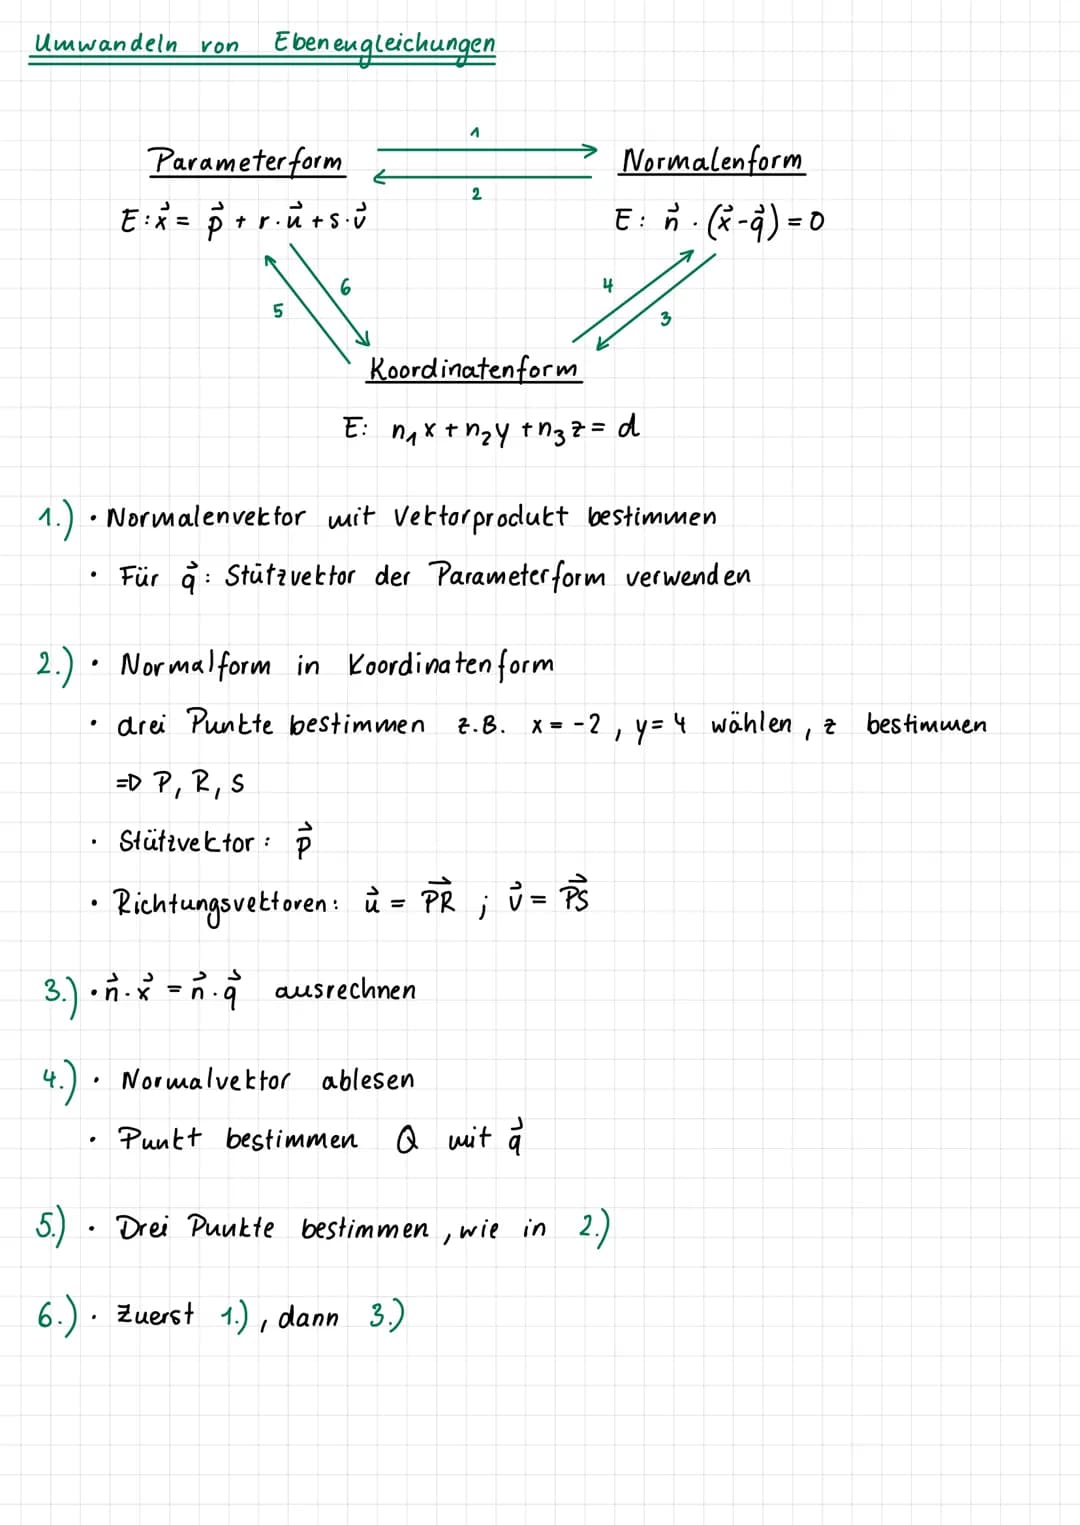 Umwandeln von Ebenengleichungen
1
Parameterform Normalenform
2
E: x⃗ = p⃗ + r·u⃗ + s·v⃗ E: n⃗ · (x⃗ - q⃗) = 0
6 4
5 3
Koordinatenform
E: n₁x + n₂y + n₃z = d
1.) · Normalenvektor mit Vektorprodukt bestimmen
· Für q⃗: Stützvektor der Parameterform verwenden
2.) · Normalform in Koordinatenform
· drei Punkte bestimmen z.B. x = -2, y = 4 wählen, z bestimmen
=> P, R, S
· Stützvektor: p⃗
· Richtungsvektoren: u⃗ = PR⃗ ; v⃗ = PS⃗
3.) · n⃗ · x⃗ = n⃗ · q⃗ ausrechnen
4.) · Normalvektor ablesen
· Punkt bestimmen Q mit q⃗
5.) · Drei Punkte bestimmen, wie in 2.)
6.) · Zuerst 1.), dann 3.)